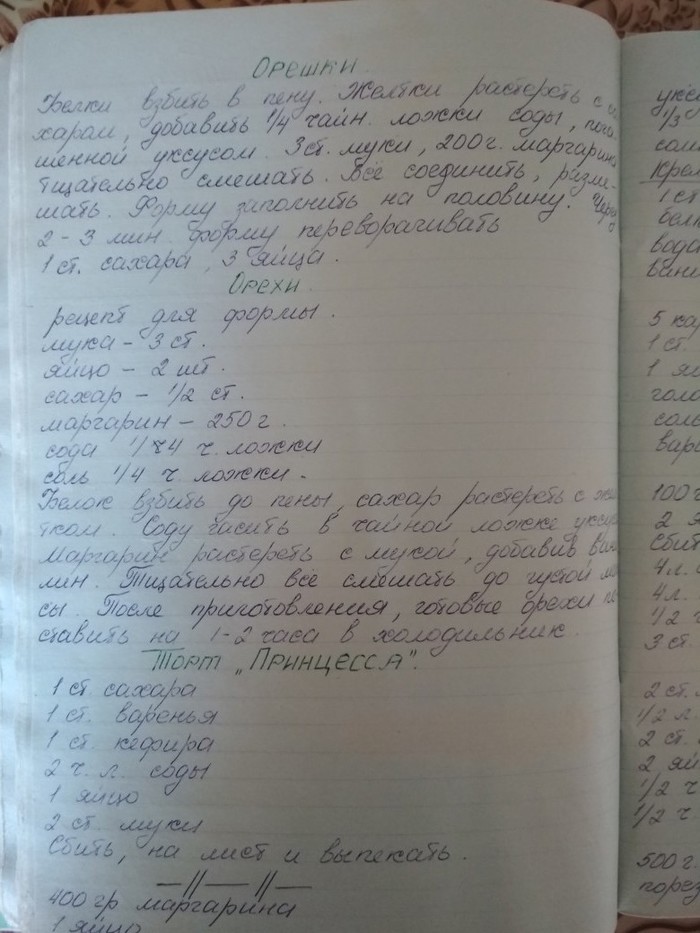 Орешки
Белки взбить в пену. Желтки растереть с са-
харом, добавить 1/4 чайн. ложки соды, пога-
шенной уксусом. 3 ст. муки, 200 г. маргарина
тщательно смешать. Всё соединить, разме-
шать. Форму заполнить на половину. Через
2 - 3 мин. форму переворачивать
1 ст. сахара, 3 яйца.
Орехи
рецепт для формы.
мука - 3 ст.
яйцо - 2 шт.
сахар - 1/2 ст.
маргарин - 250 г.
сода 1/4 ч. ложки
соль 1/4 ч ложки.
Белок взбить до пены, сахар растереть с жел
тком. Соду гасить в чайной ложке уксуса
Маргарин растереть с мукой, добавив вани
лин. Тщательно всё смешать до густой мас
сы. После приготовления, готовые орехи по
ставить на 1-2 часа в холодильник.
Торт „Принцесса".
1 ст. сахара
1 ст. варенья
1 ст. кефира
2 ч. л. соды
1 яйцо
2 ст. муки
Сбить, на лист и выпекать.
—//——//—
400 гр маргарина
1 яйцо
уксу
1/3
соли
Крем
1 ст
белк
вода
вани
5 кар
1 ст.
1 яй
голо
соль
варе
100 г
2 я
Сбит
4 л.
4 л.
1/2 ч
3 ст.
2 ст.
1/2 л.
2 ст.
2 яй
1/2 ч
1/2 ч.
500 г.
порез